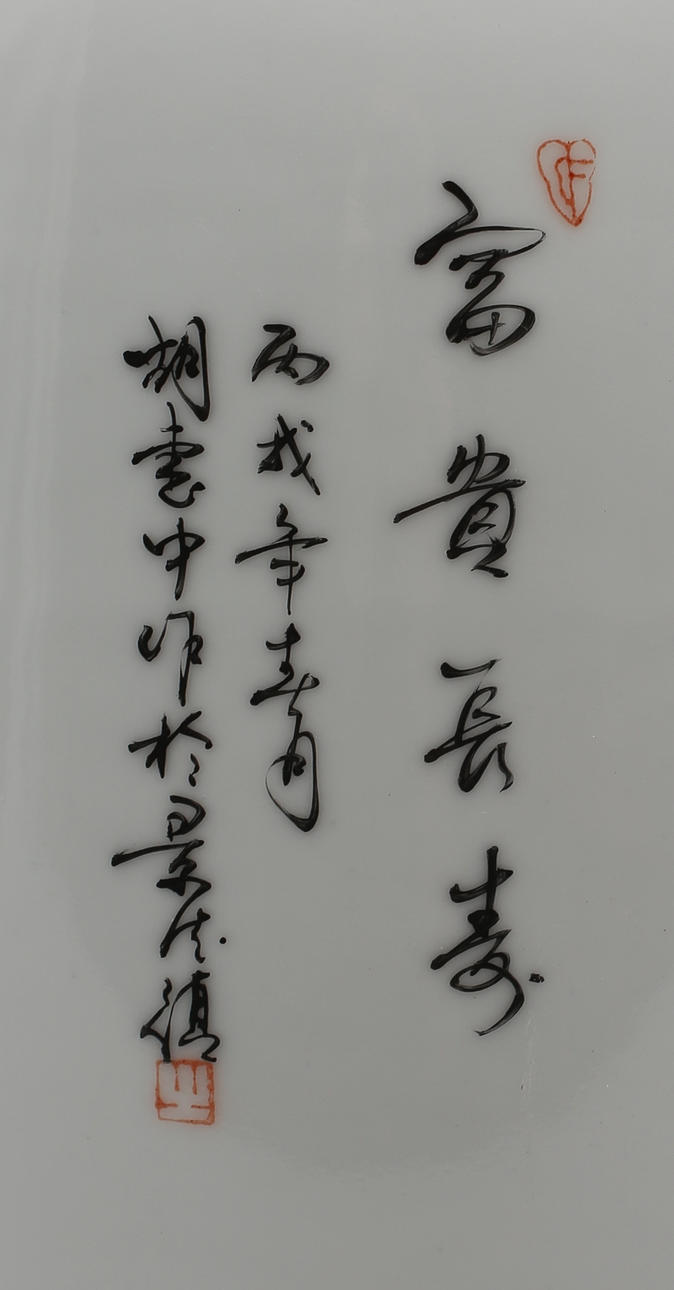 富貴長壽
丙戌年春月
胡中作於景德鎮